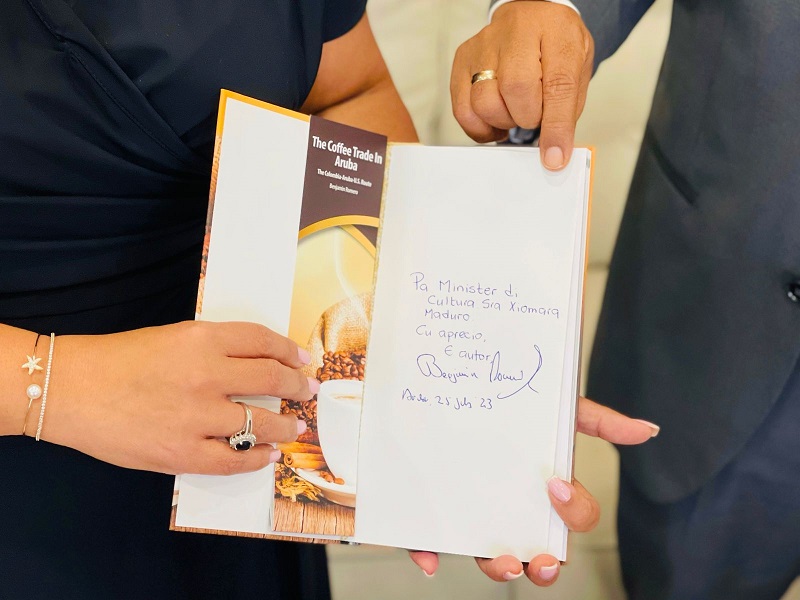 The Coffee Trade In
Aruba
The Colombia-Aruba-U.S. Route
Benjamin Romero
Pa Minister di
Cultura Sra Xiomara
Maduro
Cu aprecio,
E autor,
Benjamin Romero
25 july 23